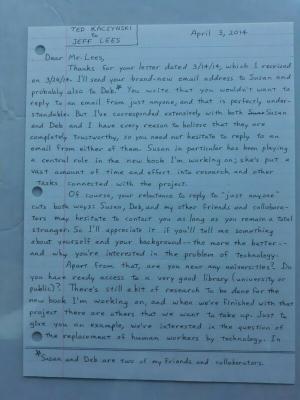 TED KACZYNSKI
to
JEFF LEES
April 3, 2014
Dear Mr. Lees,
Thanks for your letter dated 3/14/14, which I received
on 3/26/14. I'll send your brand-new email address to Susan and
probably also to Deb.* You write that you wouldn't want to
reply to an email from just anyone, and that is perfectly under-
standable. But I've corresponded extensively with both Susan
and Deb and I have every reason to believe that they are
completely trustworthy, so you need not hesitate to reply to an
email from either of them. Susan in particular has been playing
a central role in the new book I'm working on; she's put a
vast amount of time and effort into research and other
tasks connected with the project.
Of course, your reluctance to reply to "just anyone"
cuts both ways: Susan, Deb, and my other friends and collabora-
tors may hesitate to contact you as long as you remain a total
stranger. So I'll appreciate it if you'll tell me something
about yourself and your background--the more the better--
and why you're interested in the problem of technology.
Apart from that, are you near any universities? Do
you have ready access to a very good library (university or
public)? There's still a bit of research to be done for the
new book I'm working on, and when we're finished with that
project there are others that we want to take up. Just to
give you an example, we're interested in the question of
the replacement of human workers by technology. In
*Susan and Deb are two of my friends and collaborators.